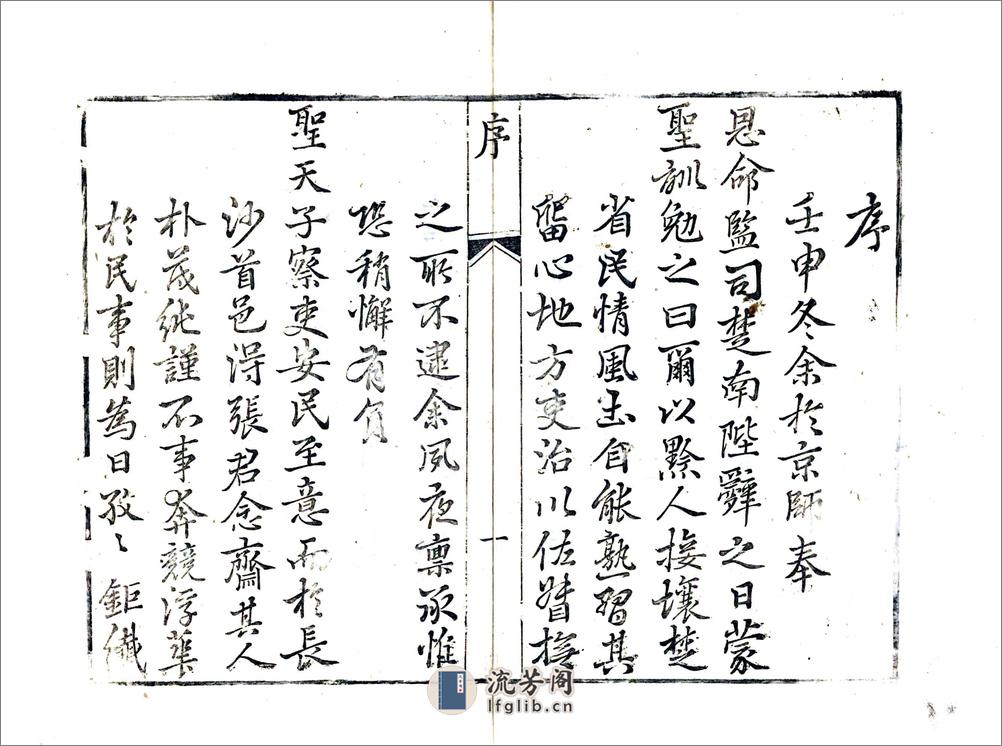 序
壬申冬余於京師奉
恩命監司楚南陛辭之日蒙
聖訓勉之曰爾以黔人接壤楚
省民情風土自能熟習其
留心地方吏治以佐督撫
序
一
之所不逮余夙夜稟承惟
恐稍懈有負
聖天子察吏安民至意而於長
沙首邑得張君念齋其人
朴茂純謹不事奔競浮華
於民事則為日孜〻鉅纖
流芳阁
lfglib.cn